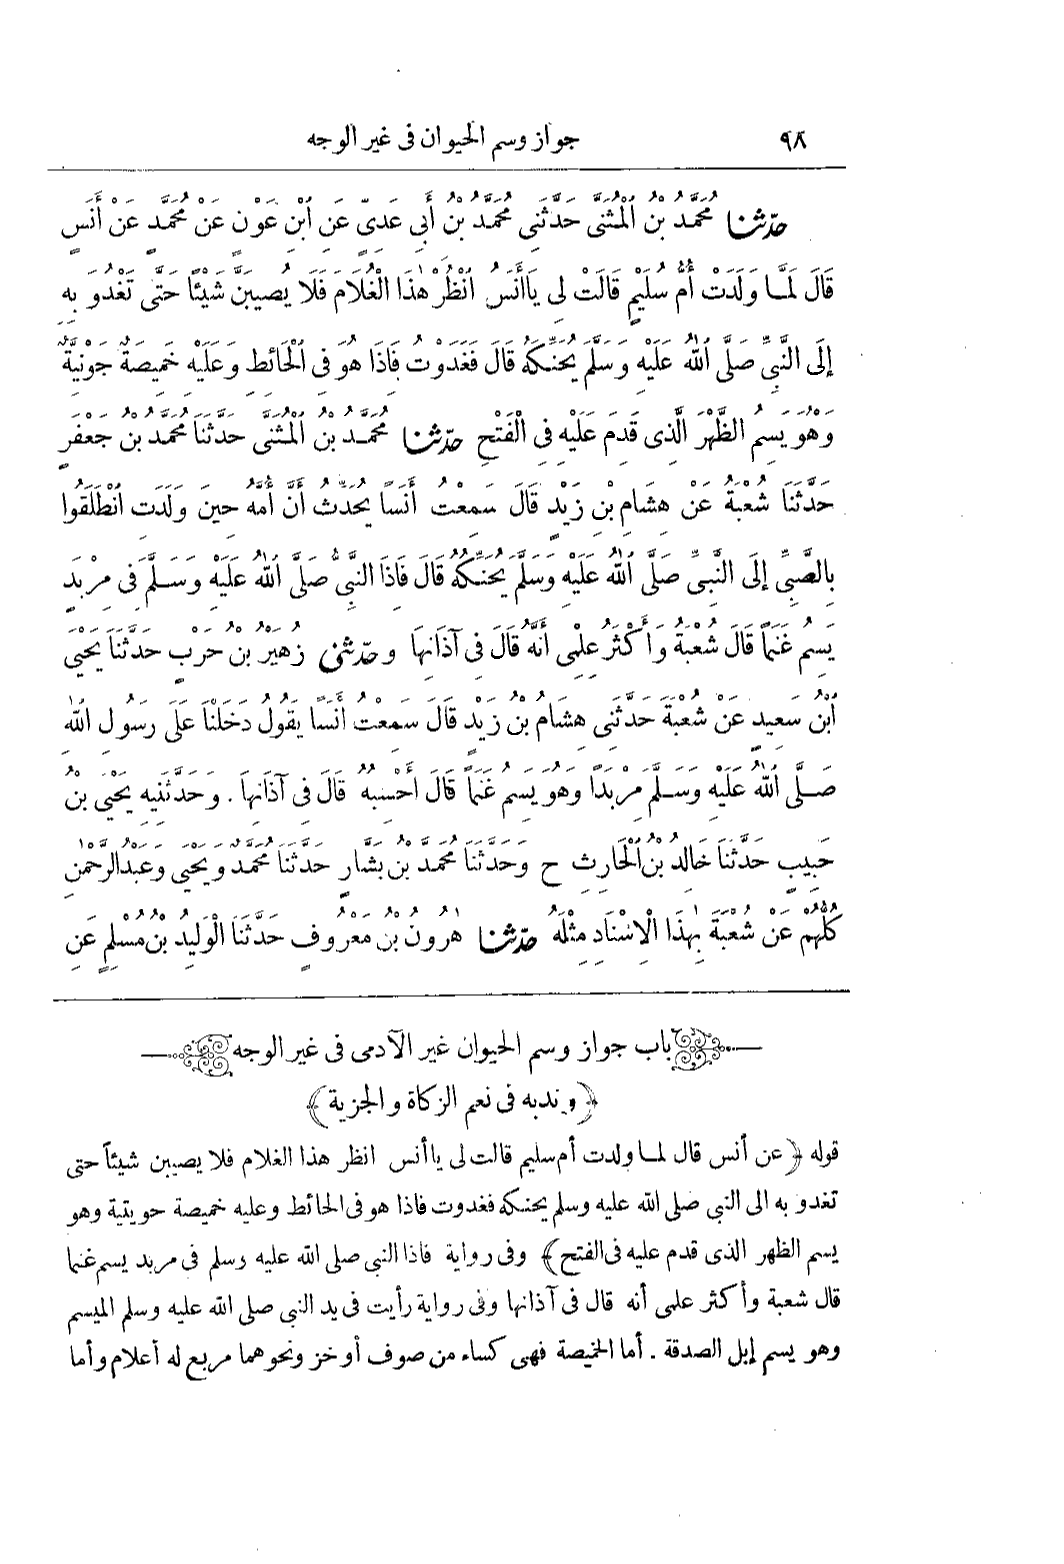 ٩٨ جواز وسم الحيوان فى غير الوجه
حدّثنا مُحَمَّدُ بْنُ الْمُثَنَّى حَدَّثَنِى مُحَمَّدُ بْنُ أَبِى عَدِىٍّ عَنِ ابْنِ عَوْنٍ عَنْ مُحَمَّدٍ عَنْ أَنَسٍ
قَالَ لَمَّا وَلَدَتْ أُمُّ سُلَيْمٍ قَالَتْ لِى يَاأَنَسُ انْظُرْ هٰذَا الْغُلَامَ فَلَا يُصِيبَنَّ شَيْئًا حَتَّى تَغْدُوَ بِهِ
إِلَى النَّبِىِّ صَلَّى اللهُ عَلَيْهِ وَسَلَّمَ يُحَنِّكُهُ قَالَ فَغَدَوْتُ فَاذَا هُوَ فِى الْحَائِطِ وَعَلَيْهِ خَمِيصَةٌ جَوْنِيَّةٌ
وَهُوَ يَسِمُ الظَّهْرَ الَّذِى قَدِمَ عَلَيْهِ فِى الْفَتْحِ حدّثنا مُحَمَّدُ بْنُ الْمُثَنَّى حَدَّثَنَا مُحَمَّدُ بْنُ جَعْفَرٍ
حَدَّثَنَا شُعْبَةُ عَنْ هِشَامِ بْنِ زَيْدٍ قَالَ سَمِعْتُ أَنَسًا يُحَدِّثُ أَنَّ أُمَّهُ حِينَ وَلَدَتِ انْطَلَقُوا
بِالصَّبِىِّ إِلَى النَّبِىِّ صَلَّى اللهُ عَلَيْهِ وَسَلَّمَ يُحَنِّكُهُ قَالَ فَاذَا النَّبِىُّ صَلَّى اللهُ عَلَيْهِ وَسَلَّمَ فِى مِرْبَدٍ
يَسِمُ غَنَمًا قَالَ شُعْبَةُ وَأَكْثَرُ عِلْمِى أَنَّهُ قَالَ فِى آذَانِهَا وحدّثنى زُهَيْرُ بْنُ حَرْبٍ حَدَّثَنَا يَحْيَى
ابْنُ سَعِيدٍ عَنْ شُعْبَةَ حَدَّثَنِى هِشَامُ بْنُ زَيْدٍ قَالَ سَمِعْتُ أَنَسًا يَقُولُ دَخَلْنَا عَلَى رَسُولِ اللهِ
صَلَّى اللهُ عَلَيْهِ وَسَلَّمَ مِرْبَدًا وَهُوَ يَسِمُ غَنَمًا قَالَ أَحْسِبُهُ قَالَ فِى آذَانِهَا . وَحَدَّثَنِيهِ يَحْيَى بْنُ
حَبِيبٍ حَدَّثَنَا خَالِدُ بْنُ الْحَارِثِ ح وَحَدَّثَنَا مُحَمَّدُ بْنُ بَشَّارٍ حَدَّثَنَا مُحَمَّدٌ وَيَحْيَى وَعَبْدُ الرَّحْمٰنِ
كُلُّهُمْ عَنْ شُعْبَةَ بِهٰذَا الْاِسْنَادِ مِثْلَهُ حدّثنا هٰرُونُ بْنُ مَعْرُوفٍ حَدَّثَنَا الْوَلِيدُ بْنُ مُسْلِمٍ عَنِ
باب جواز وسم الحيوان غير الآدمى فى غير الوجه
﴿ وندبه فى نعم الزكاة والجزية ﴾
قوله ﴿ عن أنس قال لمـا ولدت أم سليم قالت لى ياأنس انظر هذا الغلام فلا يصيبن شيئاً حتى
تغدو به الى النبى صلى الله عليه وسلم يحنكه فغدوت فاذا هو فى الحائط وعليه خميصة حويتية وهو
يسم الظهر الذى قدم عليه فى الفتح ﴾ وفى رواية فاذا النبى صلى الله عليه وسلم فى مربد يسم غنما
قال شعبة وأكثر علمى أنه قال فى آذانها وفى رواية رأيت فى يد النبى صلى الله عليه وسلم الميسم
وهو يسم إبل الصدقة . أما الخميصة فهى كساء من صوف أو خز ونحوهما مربع له أعلام وأما